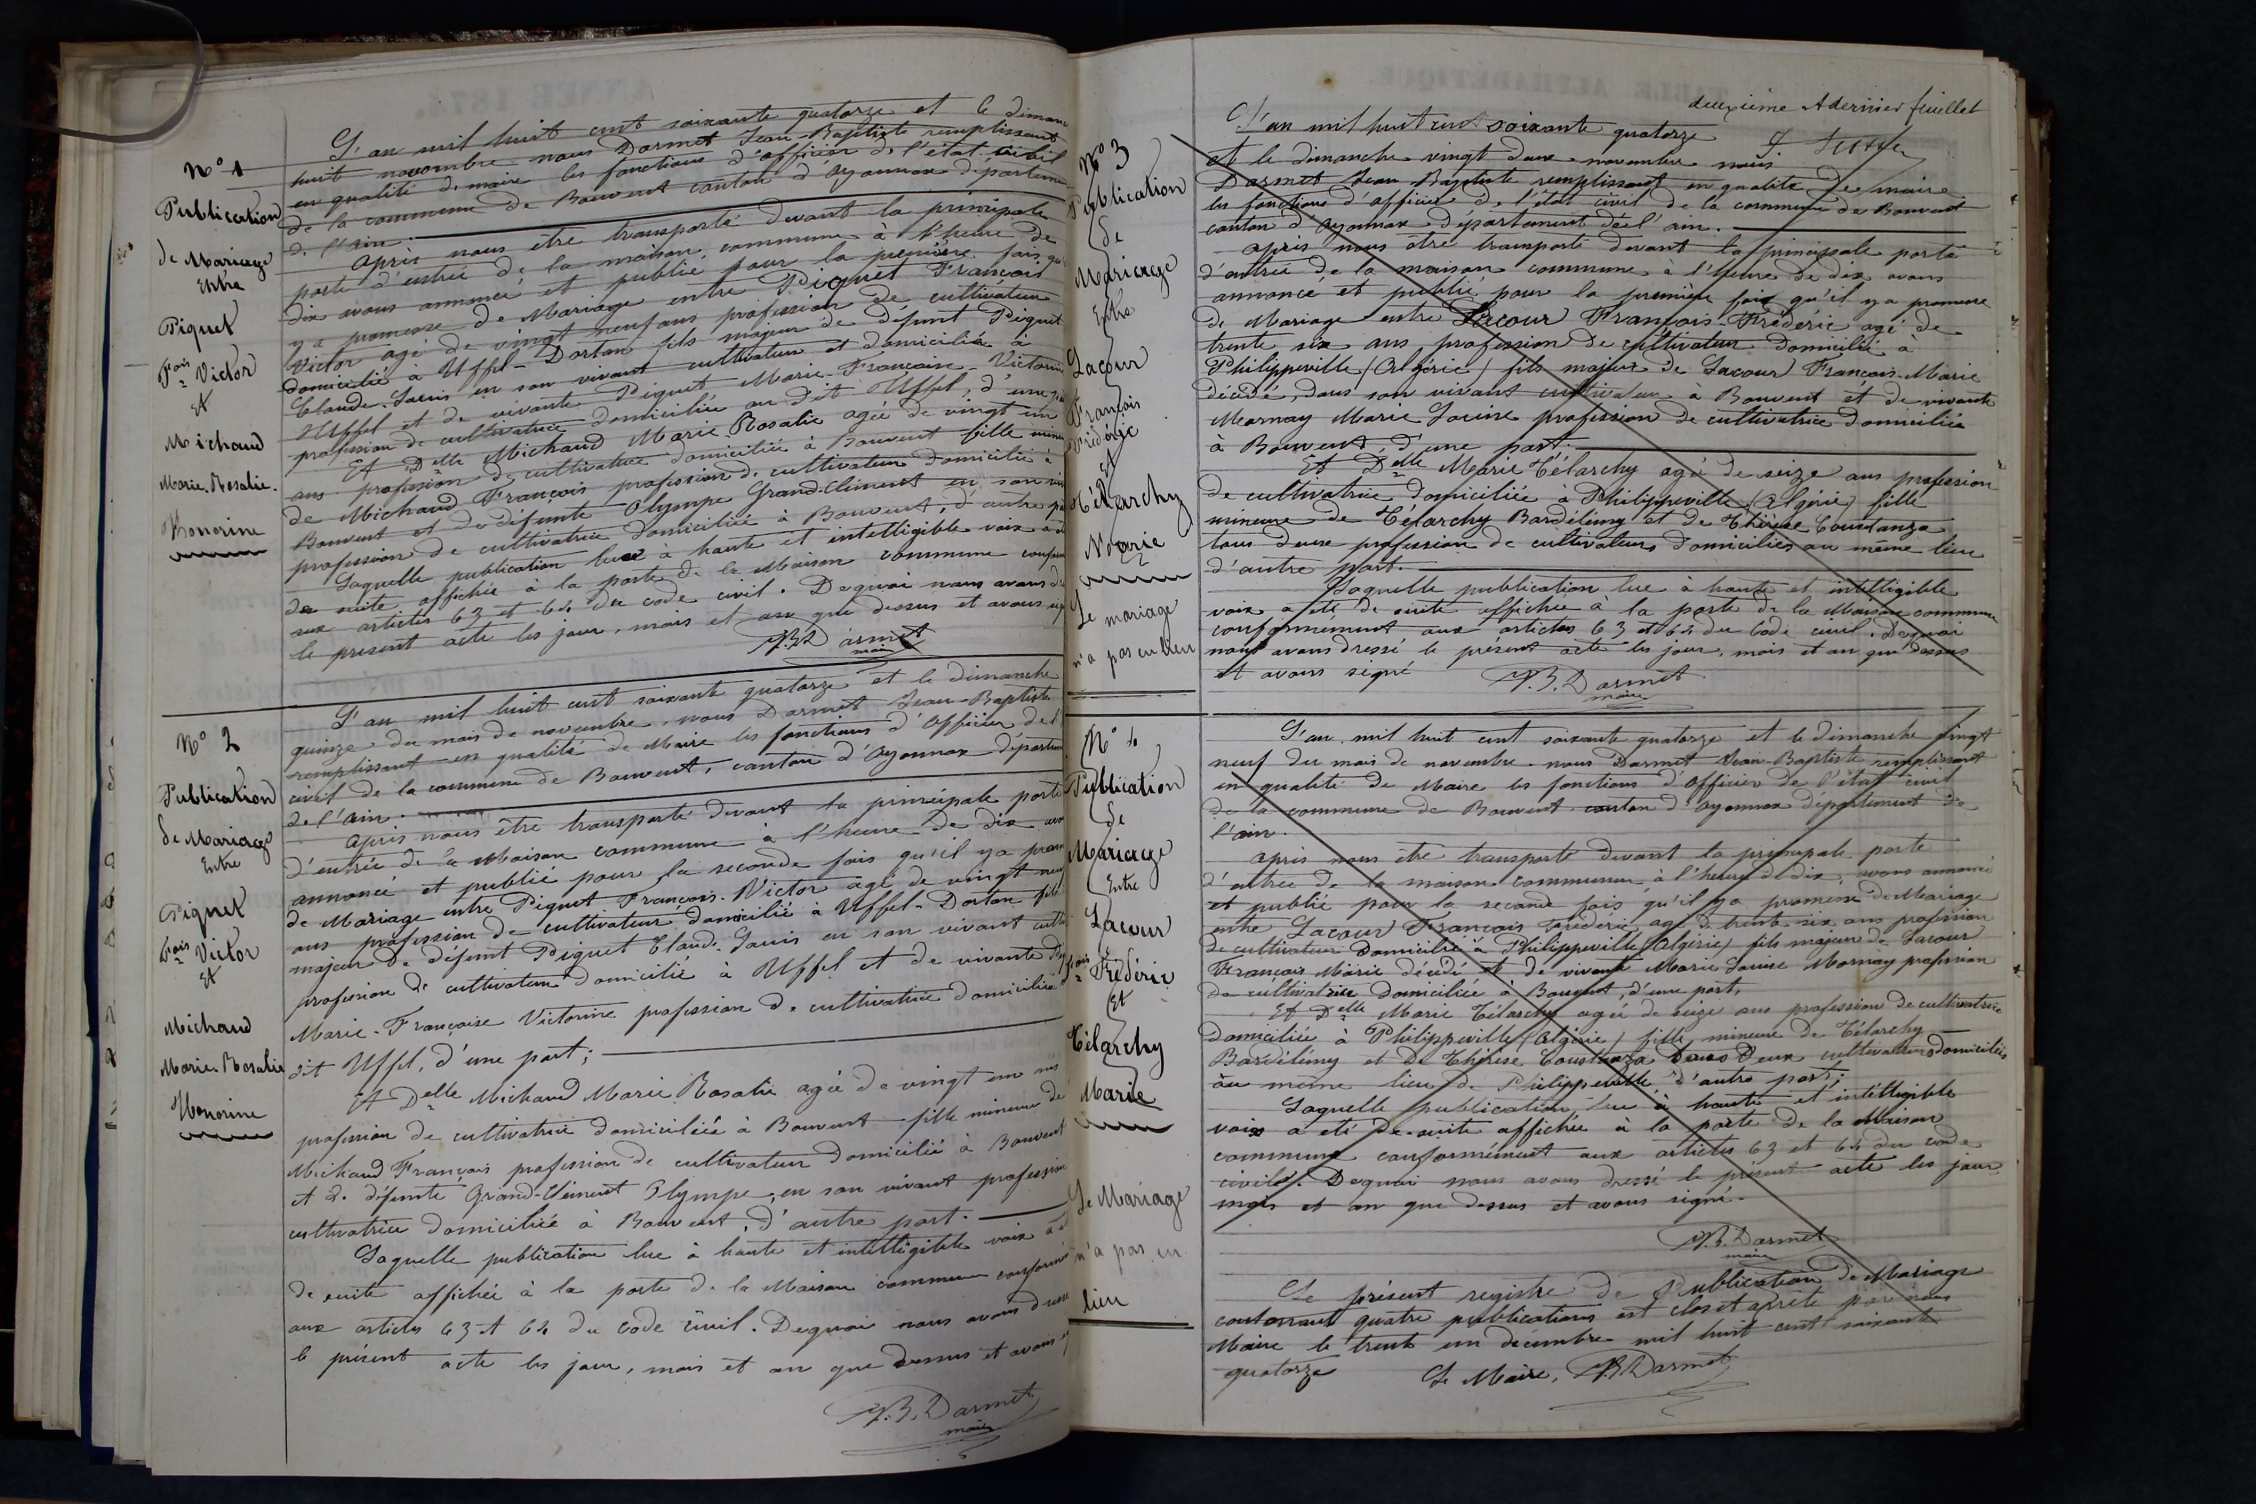 N° 1
Publication
de Mariage
Entre
Piquet
fçois Victor
et
Michaud
Marie-Rosalie-
Honorine
L'an mil huit cent soixante quatorze et le diman
huit novembre nous Darmet Jean-Baptiste remplissant
en qualité de maire les fonctions d'officier de l'état civil
de la commune de Bouvent canton d'Oyonnax départeme
de l'ain.
Après nous être transporté devant la principale
porte d'entrée de la maison commune à l'heure de
dix avons annoncé et publié pour la première fois qu'
y a promesse de Mariage entre Piquet François
Victor agé de vingt neuf ans profession de cultivateur
domicilié à Uffel-Dortan fils majeur de défunt Piquet
Claude-Louis en son vivant cultivateur et domicilié à
Uffel et de vivante Piquet Marie-Françoise-Victorine
profession de cultivatrice domiciliée au dit Uffel, d'une pa
Et Delle Michaud Marie-Rosalie agée de vingt un
ans profession de cultivatrice domiciliée à Bouvent fille mine
de Michaud François profession de cultivateur domicilié à
Bouvent et de défunte Olympe Grand-Clément en son viv
profession de cultivatrice domiciliée à Bouvent, d'autre pa
Laquelle publication lue à haute et intelligible voix a é
de suite affichée à la porte de la Maison commune conform
aux articles 63 et 64 du code civil. Dequoi nous avons d
le présent acte les jour, mois et an que dessus et avons sig
J.B. Darmet
maire
N° 2
Publication
de Mariage
Entre
Piquet
fçois Victor
et
Michaud
Marie-Rosalie
Honorine
L'an mil huit cent soixante quatorze et le dimanche
quinze du mois de novembre, nous Darmet Jean-Baptiste
remplissant en qualité de Maire les fonctions d'Officier de l'
civil de la commune de Bouvent, canton d'Oyonnax départem
de l'ain.
Après nous être transporté devant la principale porte
d'entrée de la Maison commune à l'heure de dix avo
annoncé et publié pour la seconde fois qu'il y a prom
de Mariage entre Piquet François-Victor agé de vingt neuf
ans profession de cultivateur domicilié à Uffel-Dortan fils
majeur de défunt Piquet Claude-Louis en son vivant culti
profession de cultivateur domicilié à Uffel et de vivante Piq
Marie-Françoise Victorine profession de cultivatrice domiciliée
dit Uffel, d'une part;
Et Delle Michaud Marie Rosalie agée de vingt un ans
profession de cultivatrice domiciliée à Bouvent fille mineure de
Michaud François profession de cultivateur domicilié à Bouvent
et de défunte Grand-Clément Olympe, en son vivant profession
cultivatrice domiciliée à Bouvent, d'autre part.
Laquelle publication lue à haute et intelligible voix a é
de suite affichée à la porte de la Maison commune conformé
aux articles 63 et 64 du Code civil. Dequoi nous avons dressé
le présent acte les jour, mois et an que dessus et avons s
J.B. Darmet
maire
deuxième & dernier feuillet
N° 3
Publication
de
Mariage
Entre
Lacour
François
Frédéric
et
Télarchy
Marie
Le mariage
n'a pas eu lieu
L'an mil huit cent soixante quatorze
et le dimanche vingt deux novembre nous
Darmet Jean Baptiste remplissant en qualité de maire
les fonctions d'officier de l'état civil de la commune de Bouvent
canton d'Oyonnax département de l'ain.
Après nous être transporté devant la principale porte
d'entrée de la maison commune à l'heure de dix avons
annoncé et publié pour la première fois qu'il y a promesse
de Mariage entre Lacour François-Frédéric agé de
trente six ans, profession de cultivateur domicilié à
Philippeville (Algérie) fils majeur de Lacour François-Marie
décédé, dans son vivant cultivateur à Bouvent et de vivante
Mornay Marie Louise profession de cultivatrice domiciliée
à Bouvent, d'une part.
Et Delle Marie Télarchy agée de seize ans profession
de cultivatrice domiciliée à Philippeville (Algérie) fille
mineure de Télarchy Bardélémy et de Thérèse Constanza
tous deux profession de cultivateurs domiciliés au même lieu
d'autre part.
Laquelle publication lue à haute et intelligible
voix a été de suite affichée à la porte de la Maison commune
conformément aux articles 63 et 64 du Code civil. Dequoi
nous avons dressé le présent acte les jour, mois et an que dessus
et avons signé
J.B. Darmet
maire
N° 4
Publication
de
Mariage
Entre
Lacour
fçois Frédéric
Et
Télarchy
Marie
Le Mariage
n'a pas eu
lieu
L'an mil huit cent soixante quatorze et le dimanche vingt
neuf du mois de novembre nous Darmet Jean-Baptiste remplissant
en qualité de Maire les fonctions d'Officier de l'état civil
de la commune de Bouvent canton d'Oyonnax département de
l'ain.
Après nous être transporté devant la principale porte
d'entrée de la maison commune à l'heure de dix, avons annoncé
et publié pour la seconde fois qu'il y a promesse de Mariage
entre Lacour François Frédéric agé de trente six ans profession
de cultivateur domicilié à Philippeville (Algérie) fils majeur de Lacour
François Marie décédé et de vivante Marie Louise Mornay profession
de cultivatrice domiciliée à Bouvent, d'une part,
Et Delle Marie Télarchy agée de seize ans profession de cultivatrice
domiciliée à Philippeville (Algérie) fille mineure de Télarchy
Bardélémy et de Thérèse Constanza tous deux cultivateurs domiciliés
au même lieu de Philippeville d'autre part;
Laquelle publication, lue à haute et intelligible
voix a été de suite affichée à la porte de la Maison
commune conformément aux articles 63 et 64 du code
civile. Dequoi nous avons dressé le présent acte les jour
mois et an que dessus et avons signé.
J.B. Darmet
maire
Le présent registre de Publication de Mariage
contenant quatre publications est clos et arrêté par nous
Maire le trente un décembre mil huit cent soixante
quatorze
Le Maire, J.B. Darmet